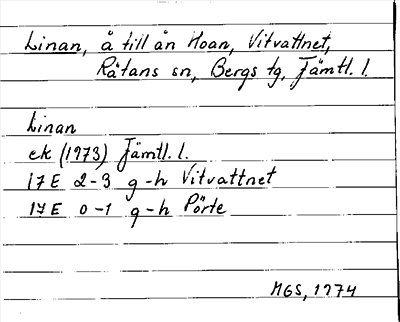 Linan, å till ån Hoan, Vitvattnet,
Rätans sn, Bergs tg, Jämtl. l.
Linan
ek (1973) Jämtl. l.
17E 2-3 g-h Vitvattnet
17E 0-1 g-h Pörte
MGS, 1974